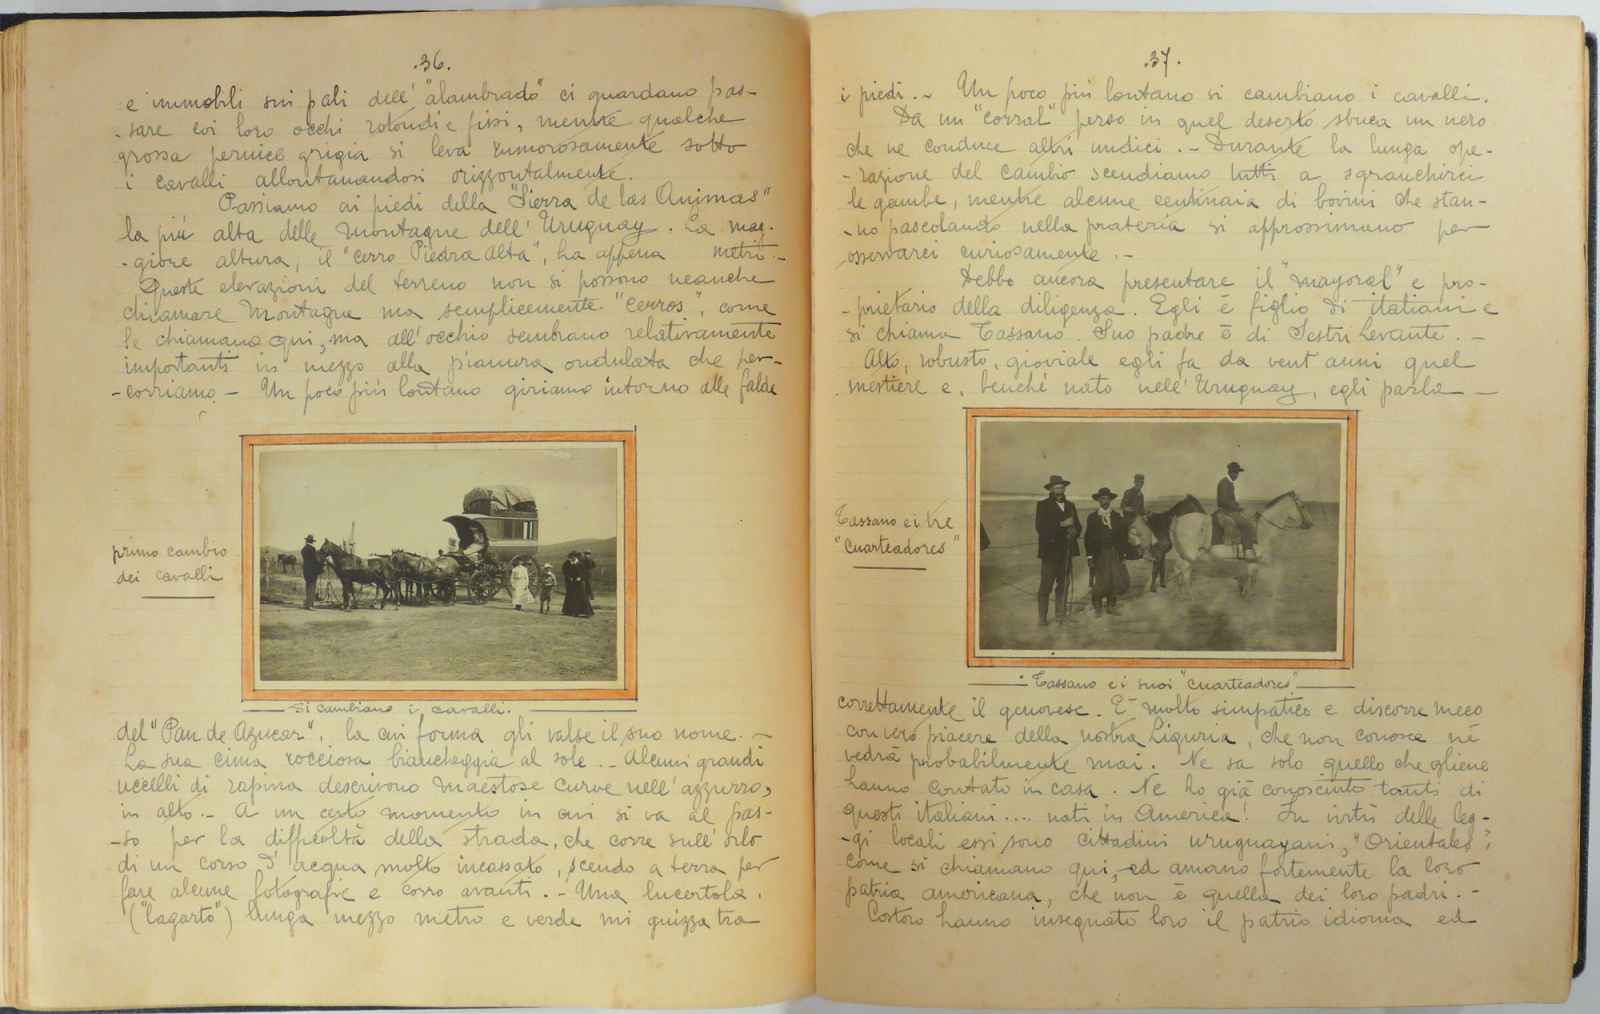 .36.
e immobili sui pali dell' "alambrado" ci guardano pas-
-sare coi loro occhi rotondi e fissi, mentre qualche
grossa pernice grigia si leva rumorosamente sotto
i cavalli allontanandosi orizzontalmente.
Passiamo ai piedi della "Sierra de las Animas"
la più alta delle montagne dell' Uruguay. La mag-
-giore altura, il "cerro Piedra Alta", ha appena metri.-
Queste elevazioni del terreno non si possono neanche
chiamare montagne ma semplicemente "cerros", come
le chiamano qui, ma all'occhio sembrano relativamente
importanti in mezzo alla pianura ondulata che per-
-corriamo - Un poco più lontano giriamo intorno alle falde
primo cambio
dei cavalli
Si cambiano i cavalli.
del "Pan de Azucar", la cui forma gli valse il suo nome. -
La sua cima rocciosa biancheggia al sole .- Alcuni grandi
uccelli di rapina descrivono maestose curve nell'azzurro,
in alto.- A un certo momento in cui si va al pas-
-so per la difficoltà della strada, che corre sull'orlo
di un corso d'acqua molto incassato, scendo a terra per
fare alcune fotografie e corro avanti. - Una lucertola.
("lagarto") lunga mezzo metro e verde mi guizza tra
.37.
i piedi. - Un poco più lontano si cambiano i cavalli.
Da un "corral" perso in quel deserto sbuca un nero
che ne conduce altri undici. - Durante la lunga ope-
-razione del cambio scendiamo tutti a sgranchirci
le gambe, mentre alcune centinaia di bovini che stan-
-no pascolando nella prateria si approssimano per
osservarci curiosamente. -
Debbo ancora presentare il "mayoral" e pro-
-prietario della diligenza. Egli è figlio di italiani e
si chiama Tassano. Suo padre è di Sestri Levante. -
Alto, robusto, gioviale egli fa da vent'anni quel
mestiere e, benché nato nell' Uruguay, egli parla -
Tassano e i tre
"cuarteadores"
Tassano e i suoi "cuarteadores"
correttamente il genovese. È molto simpatico e discorre meco
con vero piacere della nostra Liguria, che non conosce nè
vedrà probabilmente mai. Ne sa solo quello che gliene
hanno contato in casa. Ne ho già conosciuto tanti di
questi italiani.... nati in America! In virtù delle leg-
-gi locali essi sono cittadini uruguayani, "Orientales"
come si chiamano qui, ed amano fortemente la loro
patria americana, che non è quella dei loro padri. -
Costoro hanno insegnato loro il patrio idioma ed